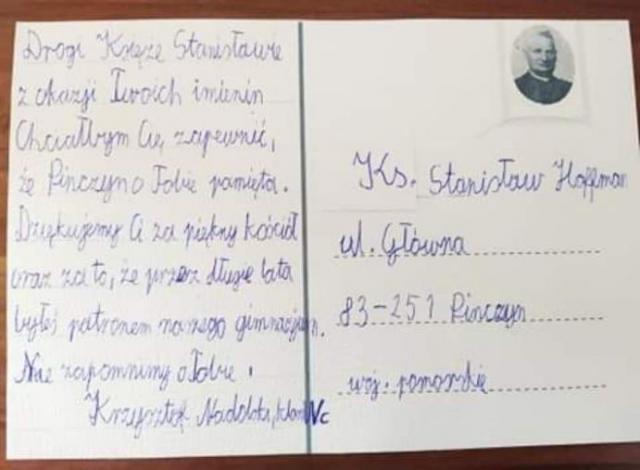 Drogi Księże Stanisławie
z okazji Twoich imienin
Chciałbym Cię zapewnić,
że Pinczyn o Tobie pamięta.
Dziękujemy Ci za piękny kościół
oraz za to, że przez długie lata
byłeś patronem naszego gimnazjum.
Nie zapomnimy o Tobie.
Krzysztof Nadolski, klasa IVc
Ks. Stanisław Hoffman
ul. Główna
83-251 Pinczyn
woj. pomorskie